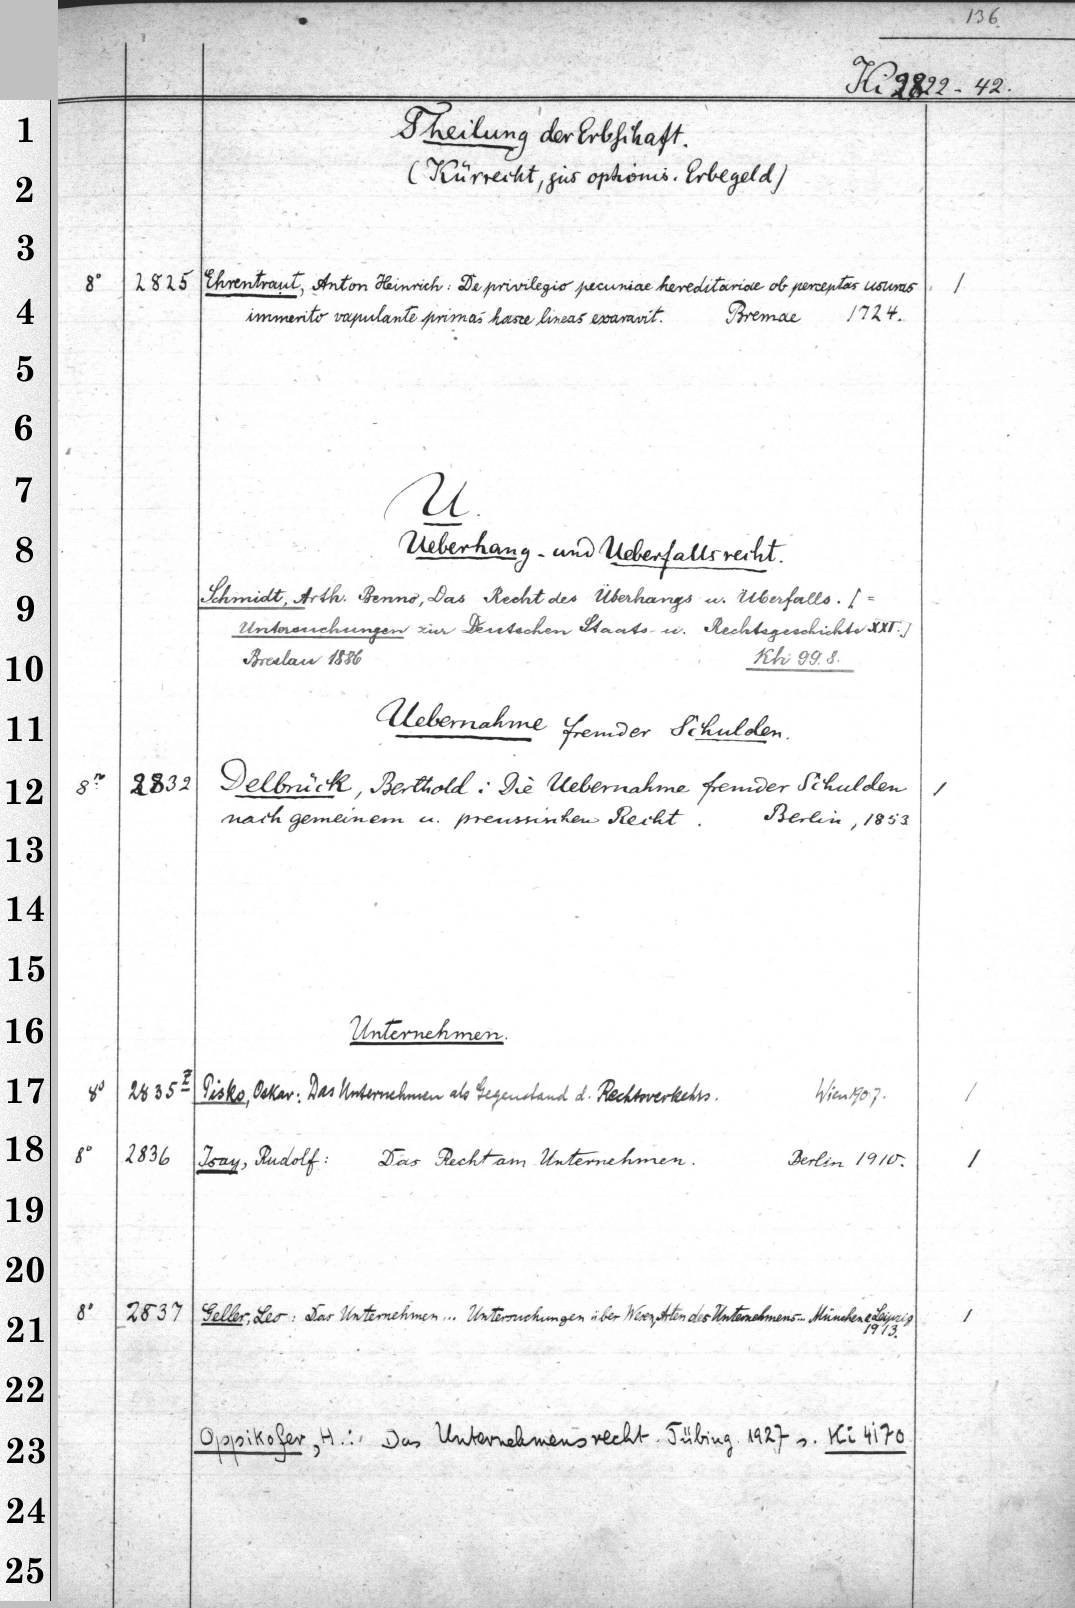 136
Ki 2822 - 42.
1
Theilung der Erbschaft.
2
(Kürrecht, jus optionis. Erbegeld)
3
8° 2825 Ehrentraut, Anton Heinrich: De privilegio pecuniae hereditariae ob perceptas usuras 1
4
immerito vapulante primas hasce lineas exaravit. Bremae 1724.
5
6
7
U.
8
Ueberhang - und Ueberfallsrecht.
9
Schmidt, Arth. Benno, Das Recht des Überhangs u. Überfalls. [=
Untersuchungen zur Deutschen Staats- u. Rechtsgeschichte XXI.]
10
Breslau 1886 Kh 99.8.
11
Uebernahme fremder Schulden.
12
8° 2832 Delbrück, Berthold: Die Uebernahme fremder Schulden 1
nach gemeinem u. preussischen Recht. Berlin, 1853
13
14
15
16
Unternehmen.
17
8° 2835 Pisko, Oskar: Das Unternehmen als Gegenstand d. Rechtsverkehrs. Wien 1907. 1
18
8° 2836 Isay, Rudolf: Das Recht am Unternehmen. Berlin 1910. 1
19
20
21
8° 2837 Geller, Leo: Das Unternehmen... Untersuchungen über Wesen, Arten des Unternehmens... München & Leipzig 1
1913.
22
23
Oppikofer, H.: Das Unternehmensrecht. Tübing. 1927 s. Ki 4170
24
25